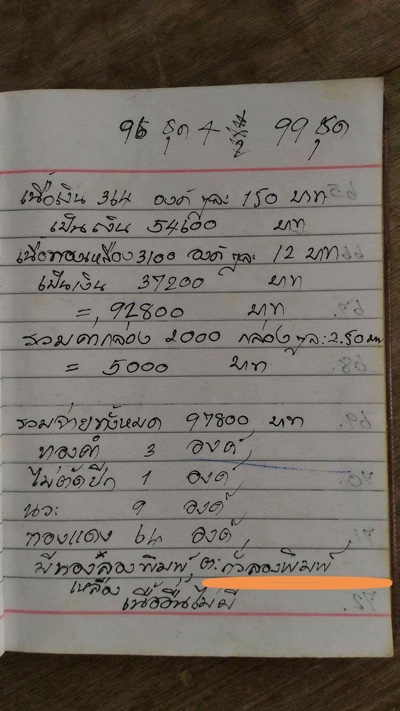 96 ชุด 4 99 ชุด
เนื้อเงิน 364 องค์ ๆละ 150 บาท
เป็นเงิน 54600 บาท
เนื้อทองเหลือง 3100 องค์ ๆละ 12 บาท
เป็นเงิน 37200 บาท
= 91800 บาท
รวมค่ากล่อง 2000 กล่อง ๆละ 2.50 บาท
= 5000 บาท
รวมจ่ายทั้งหมด 97800 บาท
ทองคำ 3 องค์
ไม่ตัดปีก 1 องค์
นวะ 9 องค์
ทองแดง 64 องค์
มีทองลองพิมพ์, ตะกั่วลองพิมพ์
เหลือง
เนื้ออื่นไม่มี